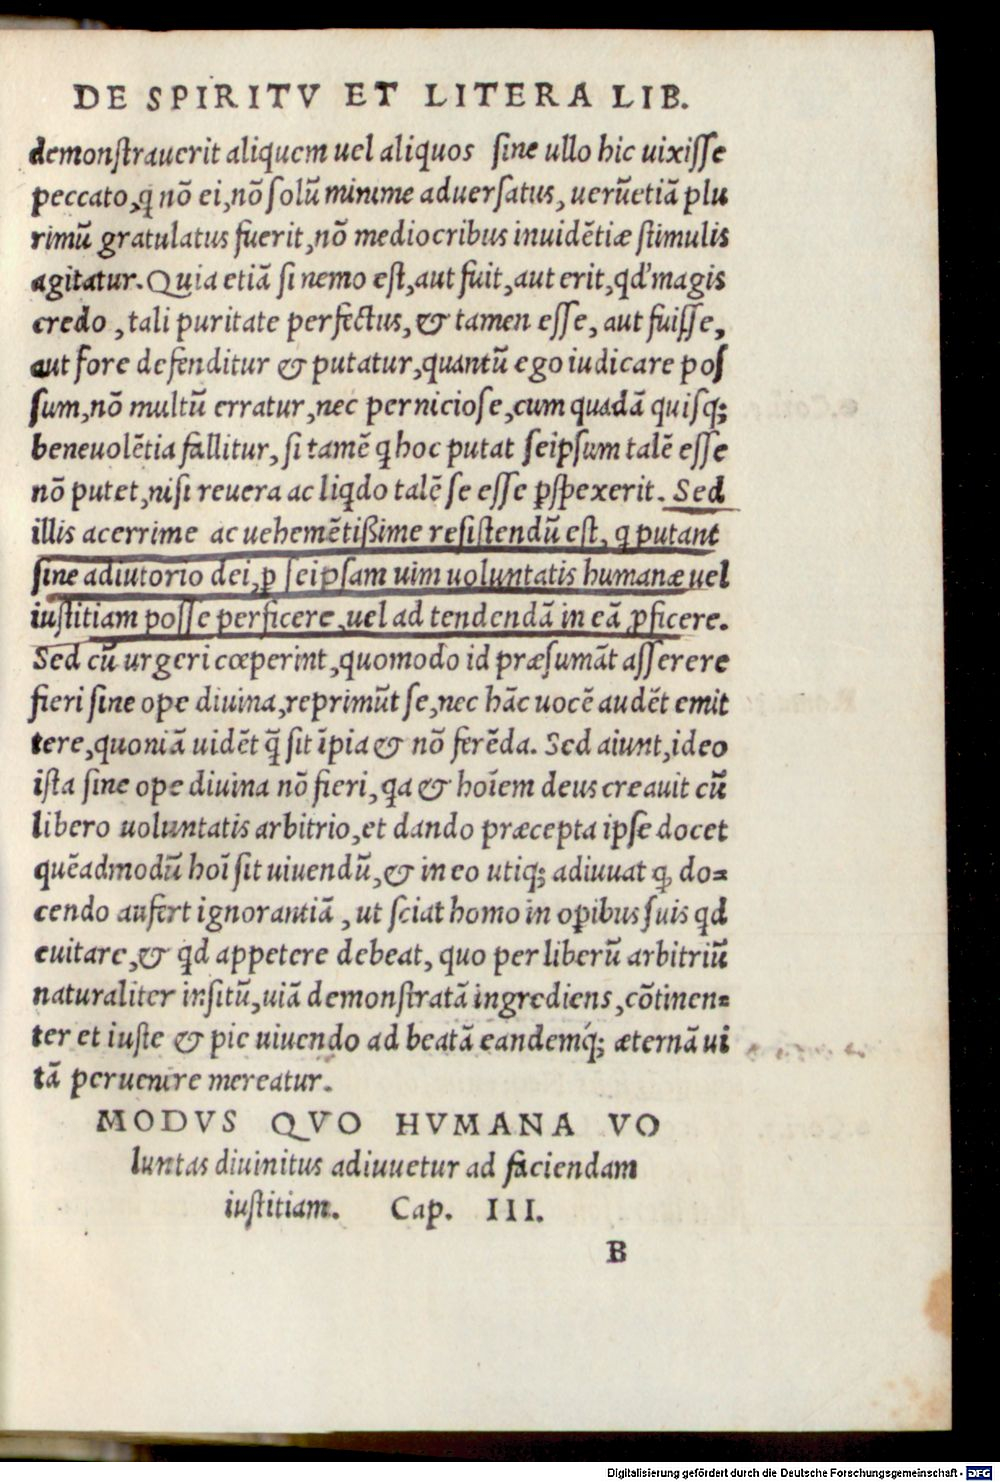 DE SPIRITV ET LITERA LIB.
demonſtrauerit aliquem uel aliquos ſine ullo hic uixiſſe
peccato, q nõ ei, nõ ſolũ minime aduerſatus, uerũetiã plu
rimũ gratulatus fuerit, nõ mediocribus inuidẽtiæ ſtimulis
agitatur. Quia etiã ſi nemo eſt, aut fuit, aut erit, qd' magis
credo, tali puritate perfectus, & tamen eſſe, aut fuiſſe,
aut fore defenditur & putatur, quantũ ego iudicare poſ
ſum, nõ multũ erratur, nec pernicioſe, cum quadã quiſq;
beneuolẽtia fallitur, ſi tamẽ q hoc putat ſeipſum talẽ eſſe
nõ putet, niſi reuera ac liqdo talẽ ſe eſſe ꝑſpexerit. Sed
illis acerrime ac uehemẽtißime reſiſtendũ eſt, q putant
ſine adiutorio dei, ꝑ ſeipſam uim uoluntatis humanæ uel
iuſtitiam poſſe perficere, uel ad tendendã in eã ꝓficere.
Sed cũ urgeri cœperint, quomodo id præſumãt aſſerere
fieri ſine ope diuina, reprimũt ſe, nec hãc uocẽ audẽt emit
tere, quoniã uidẽt q̃ ſit ĩpia & nõ ferẽda. Sed aiunt, ideo
iſta ſine ope diuina nõ fieri, qa & hoĩem deus creauit cũ
libero uoluntatis arbitrio, et dando præcepta ipſe docet
quẽadmodũ hoĩ ſit uiuendũ, & in eo utiq; adiuuat ꝙ do⸗
cendo aufert ignorantiã, ut ſciat homo in oꝑibus ſuis qd
euitare, & qd appetere debeat, quo per liberũ arbitriũ
naturaliter inſitũ, uiã demonſtratã ingrediens, cõtinen⸗
ter et iuſte & pie uiuendo ad beatã eandemq́; æternã ui
tã peruenire mereatur.
MODVS QVO HVMANA VO
luntas diuinitus adiuuetur ad faciendam
iuſtitiam. Cap. III.
B
Digitalisierung gefördert durch die Deutsche Forschungsgemeinschaft - DFG